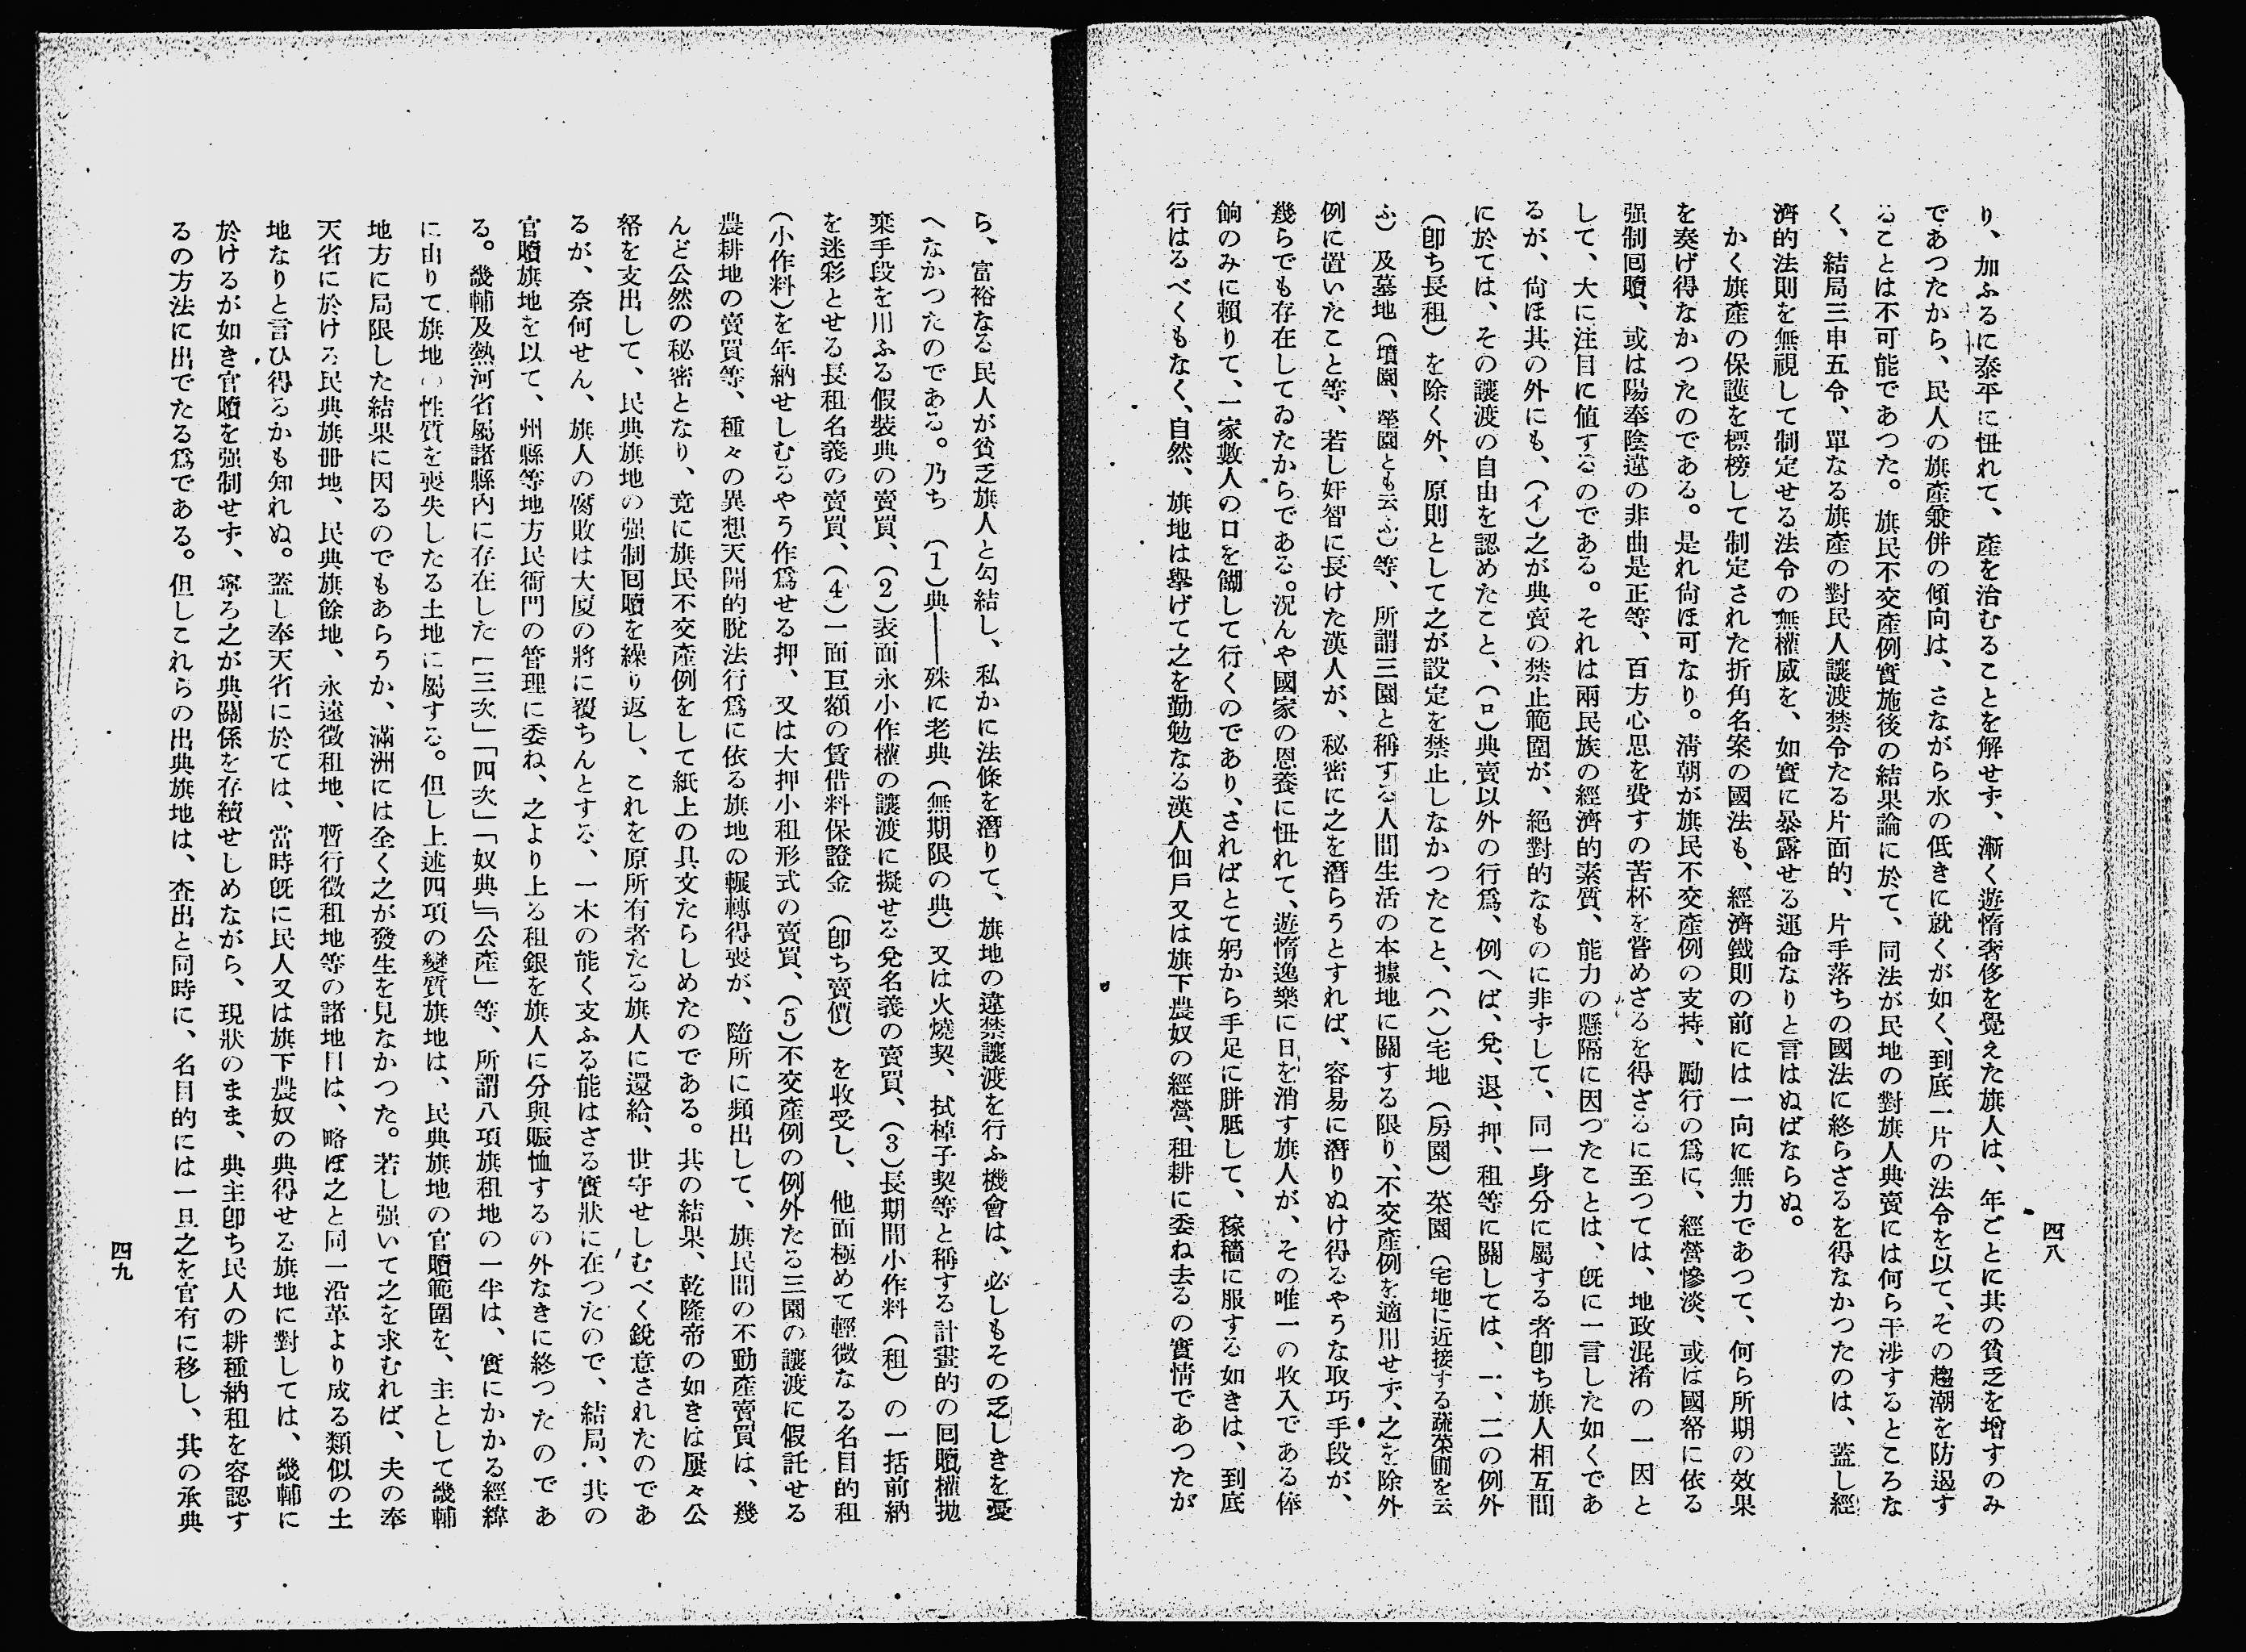 四八
り、加ふるに泰平に忸れて、產を治むることを解せず、漸く遊惰奢侈を覺えた旗人は、年ごとに其の貧乏を增すのみ
であつたから、民人の旗產兼併の傾向は、さながら水の低きに就くが如く、到底一片の法令を以て、その趨潮を防遏す
ることは不可能であつた。旗民不交產例實施後の結果論に於て、同法が民地の對旗人典賣には何ら干涉するところな
く、結局三申五令、單なる旗產の對民人讓渡禁令たる片面的、片手落ちの國法に終らざるを得なかつたのは、蓋し經
濟的法則を無視して制定せる法令の無權威を、如實に暴露せる運命なりと言はぬばならぬ。
かく旗產の保護を標榜して制定された折角名案の國法も、經濟鐵則の前には一向に無力であつて、何ら所期の效果
を奏げ得なかつたのである。是れ尙ほ可なり。淸朝が旗民不交產例の支持、勵行の爲に、經營慘淡、或は國帑に依る
强制回贖、或は陽奉陰違の非曲是正等、百方心思を費すの苦杯を嘗めざるを得ざるに至つては、地政混淆の一因と
して、大に注目に値するのである。それは兩民族の經濟的素質、能力の懸隔に因つたことは、旣に一言した如くであ
るが、尙ほ其の外にも、（イ）之が典賣の禁止範圍が、絕對的なものに非ずして、同一身分に屬する者卽ち旗人相互間
に於ては、その讓渡の自由を認めたこと、（ロ）典賣以外の行爲、例へば、兌、退、押、租等に關しては、一、二の例外
（卽ち長租）を除く外、原則として之が設定を禁止しなかつたこと、（ハ）宅地（房園）菜園（宅地に近接する蔬菜圃を云
ふ）及墓地（墳園、塋園とも云ふ）等、所謂三園と稱する人間生活の本據地に關する限り、不交產例を適用せず、之を除外
例に置いたこと等、若し奸智に長けた漢人が、秘密に之を潛らうとすれば、容易に潛りぬけ得るやうな取巧手段が、
幾らでも存在してゐたからである。況んや國家の恩養に忸れて、遊惰逸樂に日を消す旗人が、その唯一の收入である俸
餉のみに賴りて、一家數人の口を餬して行くのであり、さればとて躬から手足に胼胝して、稼穡に服する如きは、到底
行はるべくもなく、自然、旗地は擧げて之を勤勉なる漢人佃戶又は旗下農奴の經營、租耕に委ね去るの實情であつたが
ら、富裕なる民人が貧乏旗人と勾結し、私かに法條を潛りて、旗地の違禁讓渡を行ふ機會は、必しもその乏しきを憂
へなかつたのである。乃ち（1）典――殊に老典（無期限の典）又は火燒契、拭棹子契等と稱する計畫的の回贖權拋
棄手段を川ふる假裝典の賣買、（2）表面永小作權の讓渡に擬せる兌名義の賣買、（3）長期間小作料（租）の一括前納
を迷彩とせる長租名義の賣買、（4）一面巨額の賃借料保證金（卽ち賣價）を收受し、他面極めて輕微なる名目的租
（小作料）を年納せしむるやう作爲せる押、又は大押小租形式の賣買、（5）不交產例の例外たる三園の讓渡に假託せる
農耕地の賣買等、種々の異想天開的脫法行爲に依る旗地の輾轉得喪が、隨所に頻出して、旗民間の不動產賣買は、幾
んど公然の秘密となり、竟に旗民不交產例をして紙上の具文たらしめたのである。其の結果、乾隆帝の如きは屢々公
帑を支出して、民典旗地の强制回贖を繰り返し、これを原所有者たる旗人に還給、世守せしむべく銳意されたのであ
るが、奈何せん、旗人の腐敗は大廈の將に覆ちんとする、一木の能く支ふる能はざる實狀に在つたので、結局、其の
官贖旗地を以て、州縣等地方民衙門の管理に委ね、之より上る租銀を旗人に分與賑恤するの外なきに終つたのであ
る。畿輔及熱河省屬諸縣內に存在した「三次」「四次」「奴典」「公產」等、所謂八項旗租地の一半は、實にかかる經緯
に由りて旗地の性質を喪失したる土地に屬する。但し上述四項の變質旗地は、民典旗地の官贖範圍を、主として畿輔
地方に局限した結果に因るのでもあらうか、滿洲には全く之が發生を見なかつた。若し强いて之を求むれば、夫の奉
天省に於ける民典旗冊地、民典旗餘地、永遠徵租地、暫行徵租地等の諸地目は、略ぼ之と同一沿革より成る類似の土
地なりと言ひ得るかも知れぬ。蓋し奉天省に於ては、當時旣に民人又は旗下農奴の典得せる旗地に對しては、畿輔に
於けるが如き官贖を强制せず、寧ろ之が典關係を存續せしめながら、現狀のまま、典主卽ち民人の耕種納租を容認す
るの方法に出でたる爲である。但しこれらの出典旗地は、查出と同時に、名目的には一旦之を官有に移し、其の承典
四九